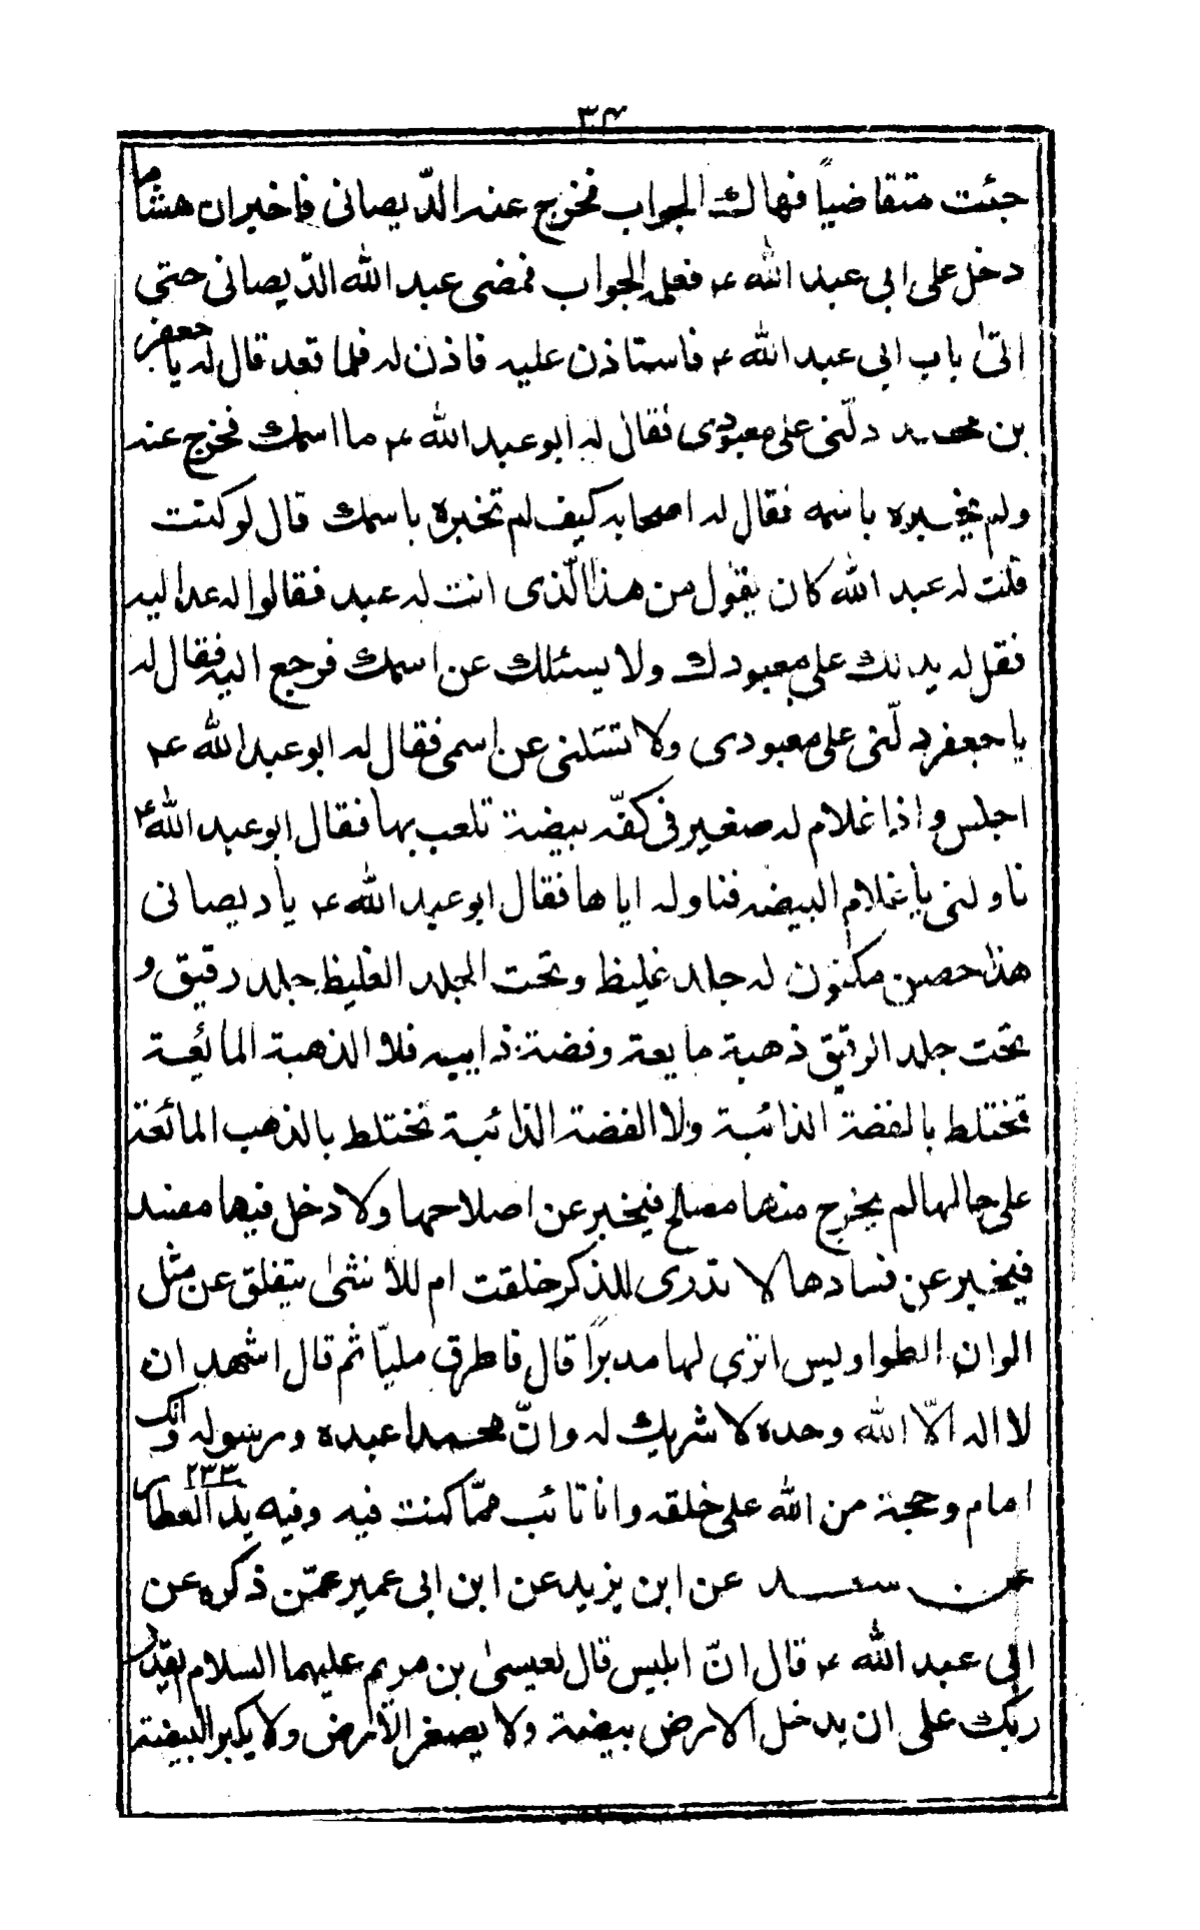 ٣٤
جئت متقاضياً فهاك الجواب فخرج عنه الدّيصانى فاخبر ان هشام
دخل على ابى عبد الله ع فعلمه الجواب فمضى عبد الله الدّيصانى حتى
اتىٰ باب ابى عبد الله ع فاستاذن عليه فاذن له فلما قعد قال له يا جعفر
بن محمد دلّنى على معبودى فقال له ابو عبد الله ع ما اسمك فخرج عنه
ولم يخبره باسمه فقال له اصحابه كيف لم تخبره باسمك قال لو كنت
قلت له عبد الله كان يقول من هذا الّذى انت له عبد فقالوا له عد اليه
فقل له يدلك على معبودك ولا يسئلك عن اسمك فرجع اليه فقال له
يا جعفر دلّنى على معبودى ولا تسئلنى عن اسمى فقال له ابو عبد الله ع
اجلس و اذا غلام له صغير فى كفّه بيضة تلعب بها فقال ابو عبد الله ع
ناولنى يا غلام البيضه فناوله اياها فقال ابو عبد الله ع يا ديصانى
هذا حصن مكنون له جلد غليظ و تحت الجلد الغليظ جلد رقيق و
تحت جلد الرقيق ذهبة مايعة وفضة ذايبه فلا الذهبة المائعة
تختلط بالفضة الذائبة ولا الفضة الذائبة تختلط بالذهب المائعة
على حالها لم يخرج منها مصلح فيخبر عن اصلاحها ولا دخل فيها مفسد
فيخبر عن فسادها لا تدرى للذكر خلقت ام للأنثىٰ يتفلق عن مثل
الوان الطواويس اترى لها مدبراً قال فاطرق مليّا ثم قال اشهد ان
لا اله الّا الله وحده لا شريك له وانّ محمدا عبده ورسوله وانّك
امام وحجة من الله على خلقه وانا تائب ممّا كنت فيه وفيه يد ٢٣٣ العطار
عن سعد عن ابن يزيد عن ابن ابى عمير عمّن ذكره عن
ابى عبد الله ع قال انّ ابليس قال لعيسىٰ بن مريم عليهما السلام يقدر
ربّك على ان يدخل الارض بيضة ولا يصغر الأرض ولا يكبر البيضة